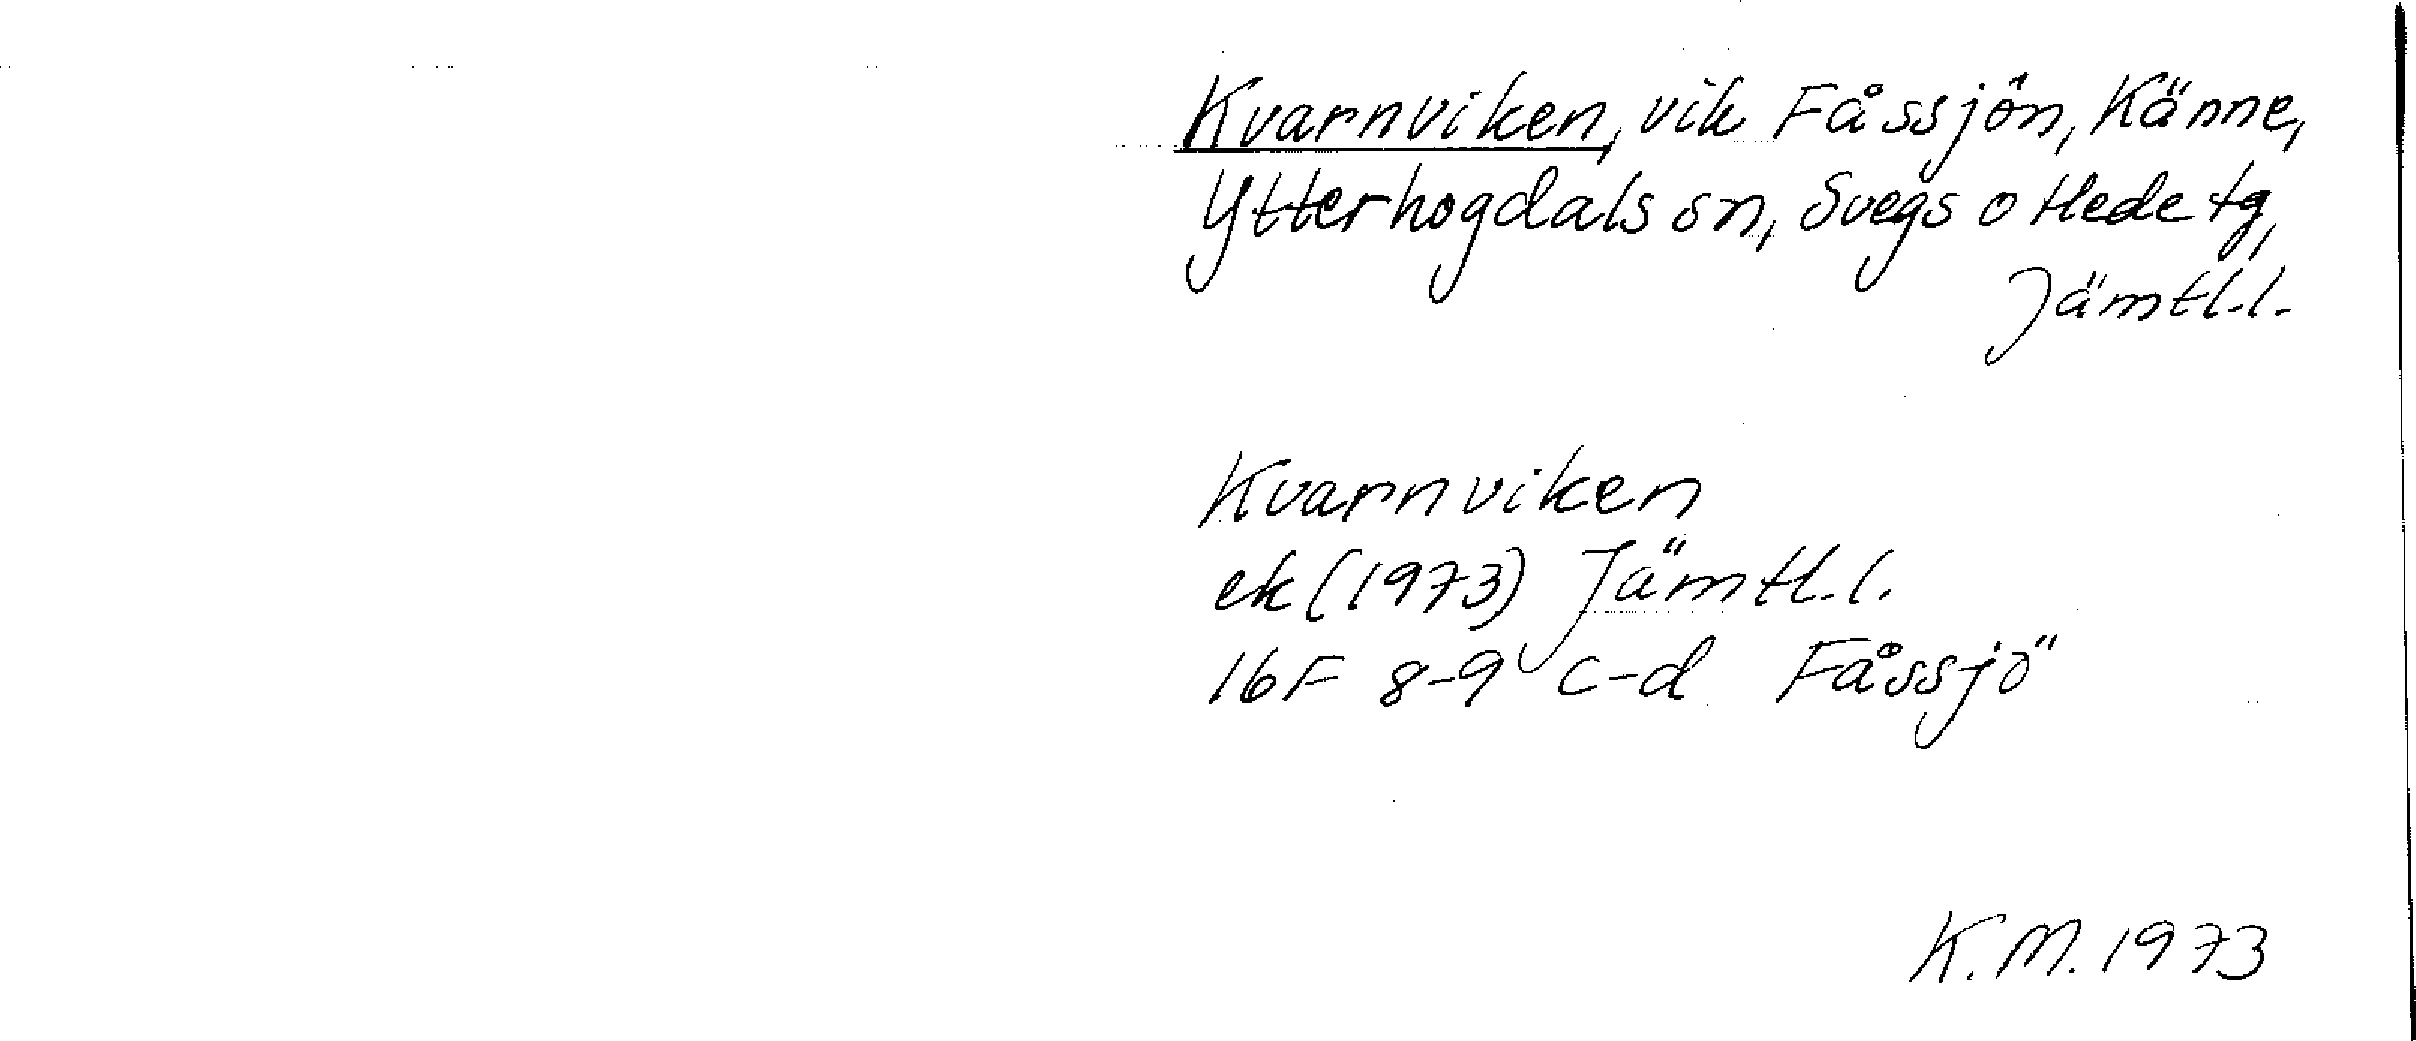 Kvarnviken, vik Fåssjön, Känne,
Ytterhogdals sn, Svegs o Hede tg,
Jämtl.l.
Kvarnviken
ek (1973) Jämtl.l.
16F 8-9 c-d Fåssjö
K.M. 1973